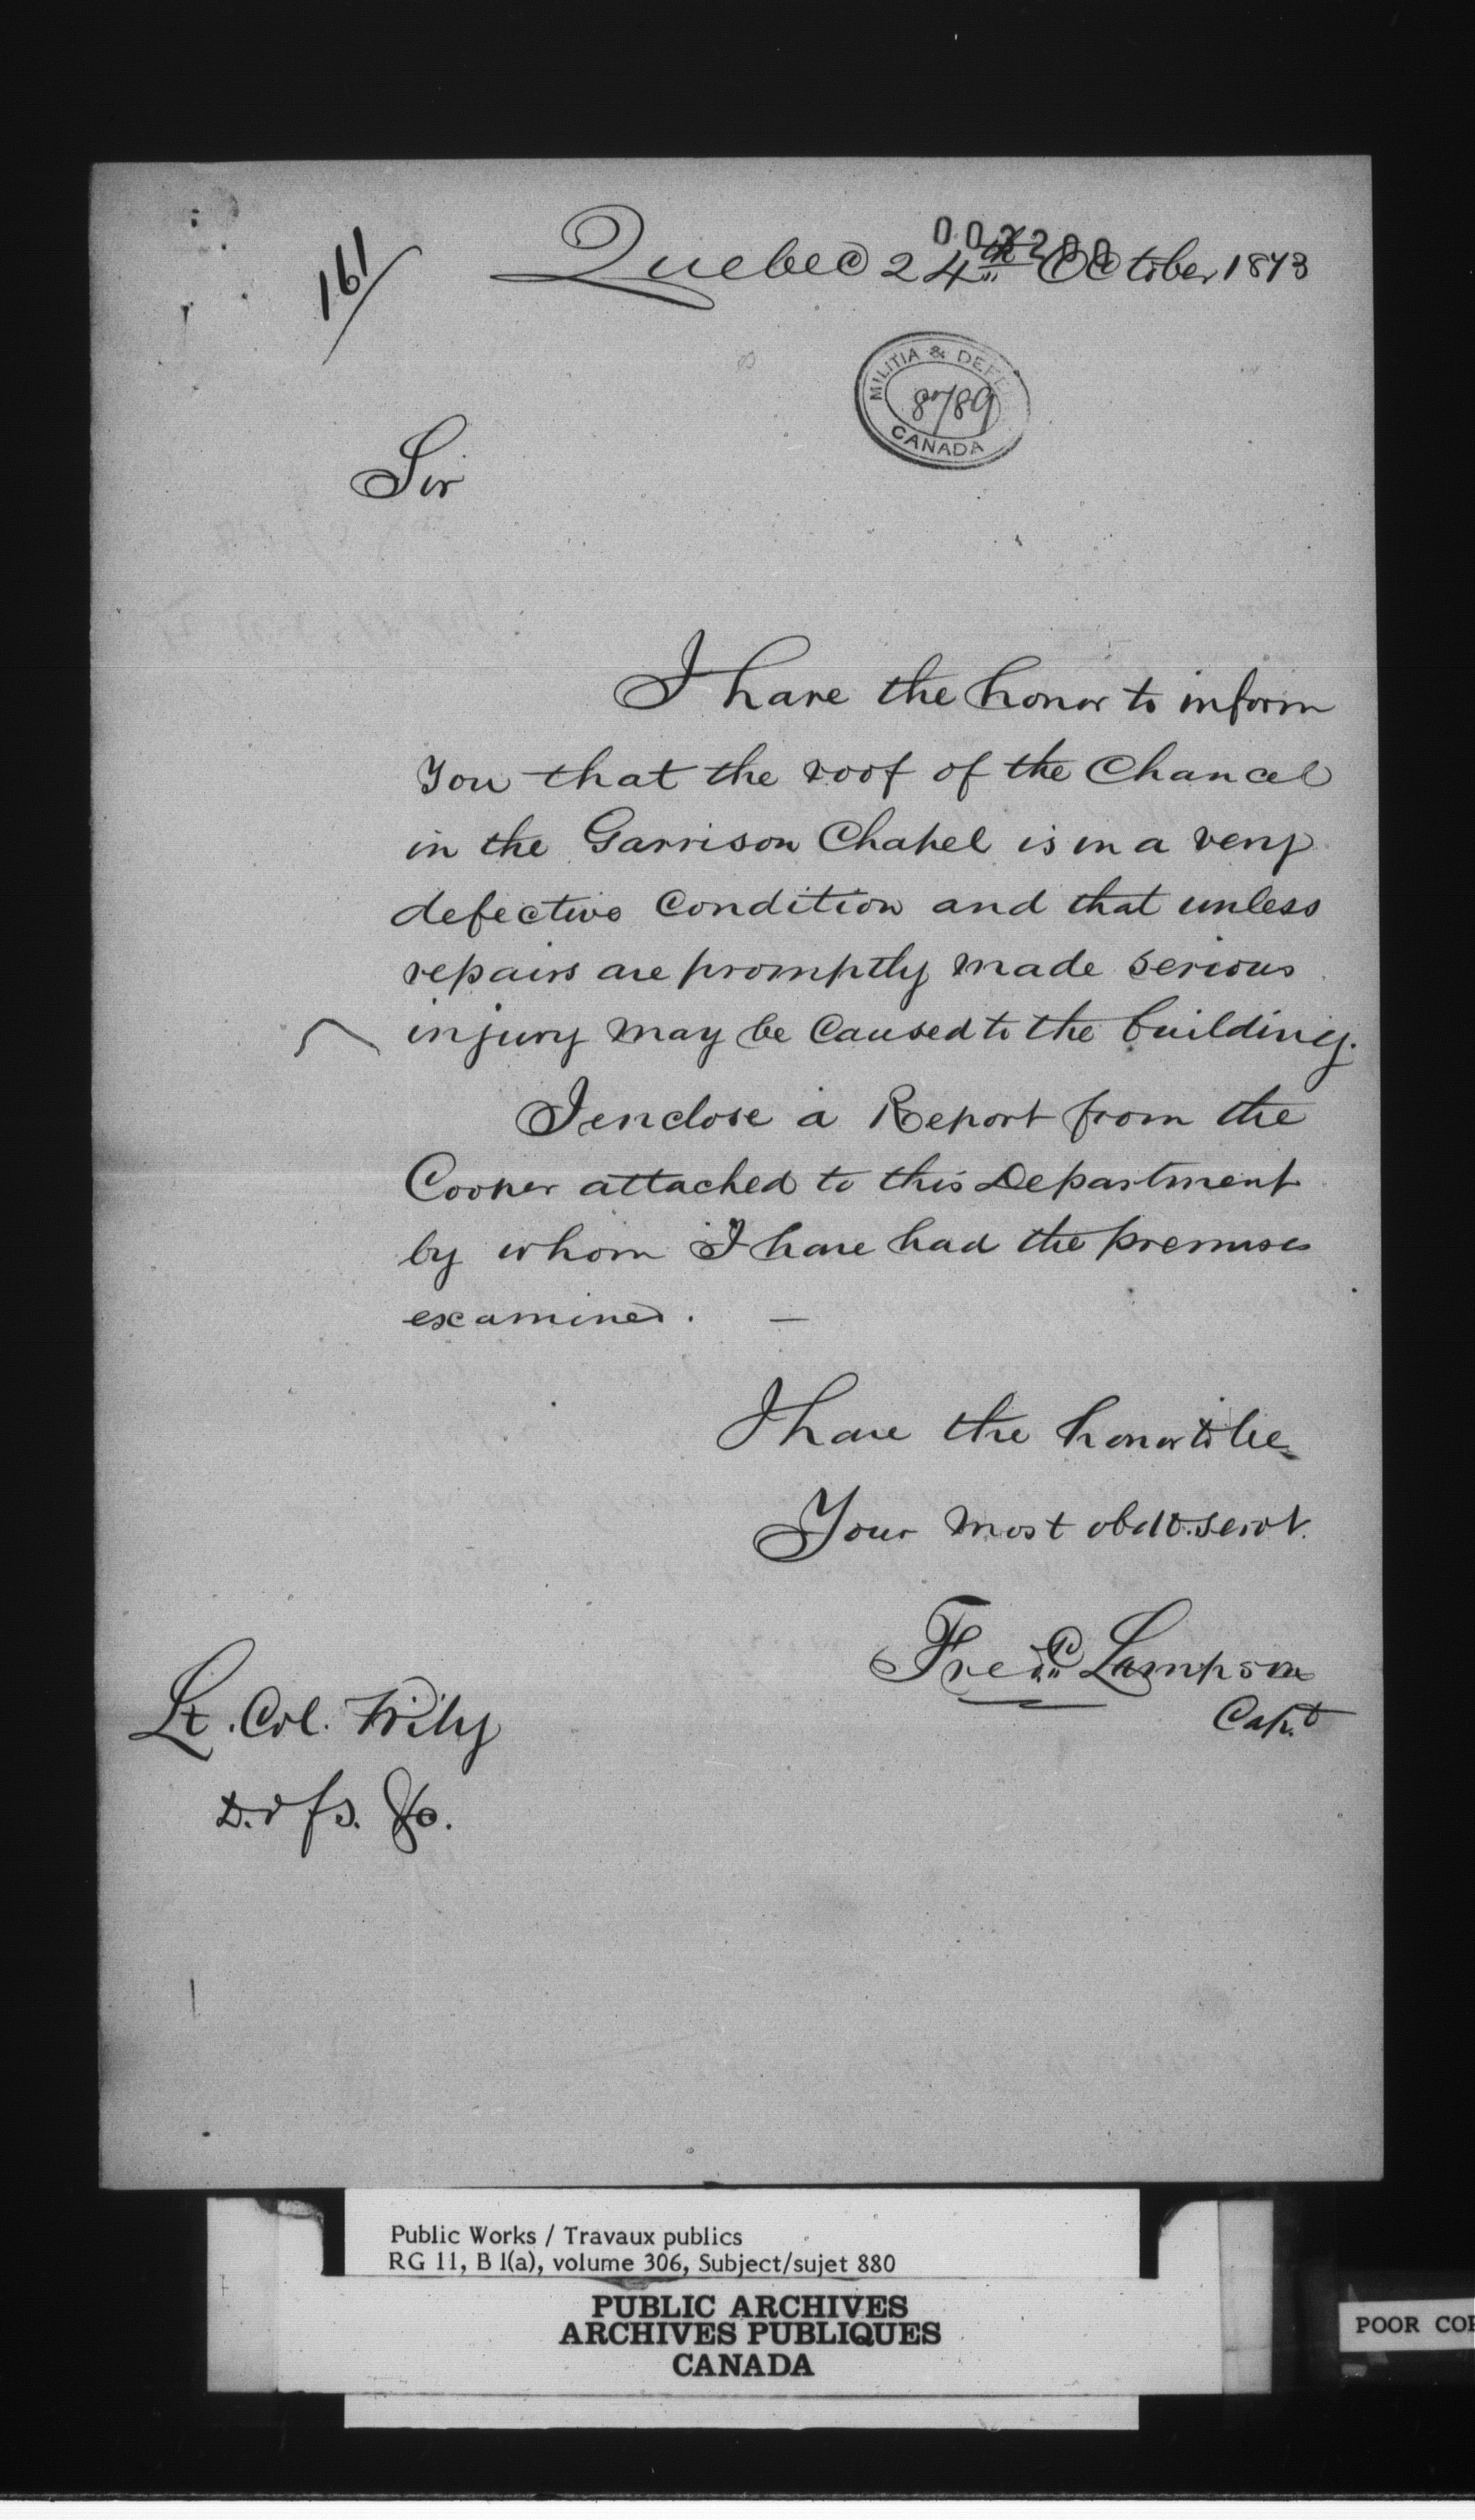 161
Quebec 24th October 1873
MILITIA & DEFE
CANADA
Sir
I have the honor to inform
You that the roof of the Chancel
in the Garrison Chapel is in a very
defective Condition and that unless
repairs are promptly made serious
injury may be Caused to the building.
I enclose a Report from the
Cooper attached to this Department
by whom I have had the premises
examined. —
I have the honor to be
Your most obdt. servt.
Fred Lampson
Capt
Lt. Col. Wily
D. of S. &c.
Public Works / Travaux publics
RG 11, B 1(a), volume 306, Subject/sujet 880
PUBLIC ARCHIVES
ARCHIVES PUBLIQUES
CANADA
POOR COP